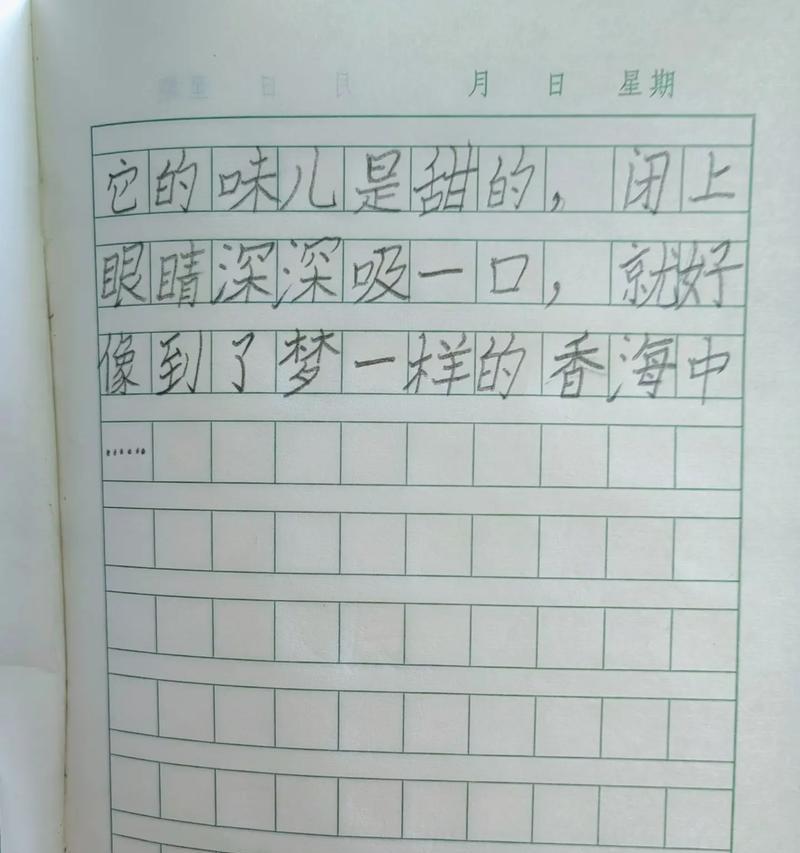 月 日 星期
它的味儿是甜的，闭上
眼睛深深吸一口，就好
像到了梦一样的香海中
……